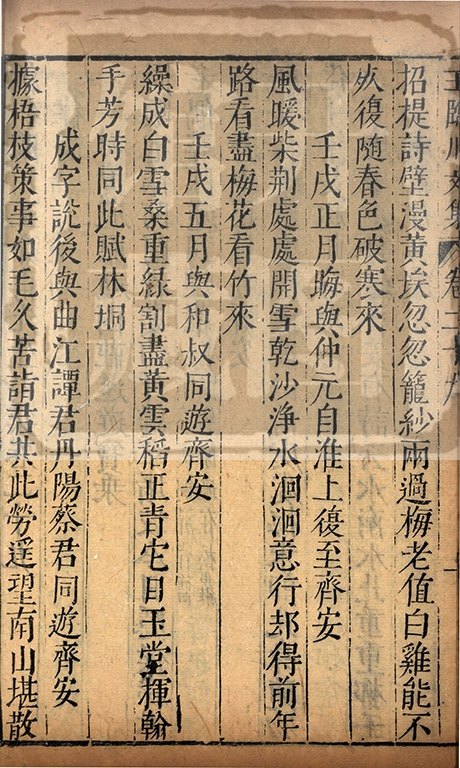 王臨川文集 卷二十九
招提詩壁漫黃埃忽忽籠紗兩過梅老值白雞能不
㱠復隨春色破寒來
壬戌正月晦與仲元自淮上復至齊安
風暖柴荆處處開雪乾沙淨水洄洄意行却得前年
路看盡梅花看竹來
壬戌五月與和叔同遊齊安
繰成白雪桑重綠割盡黃雲稻正青它日玉堂揮翰
手芳時同此賦林坰
成字説後與曲江譚君丹陽蔡君同遊齊安
據梧枝策事如毛久苦諸君共此勞遥望南山堪散